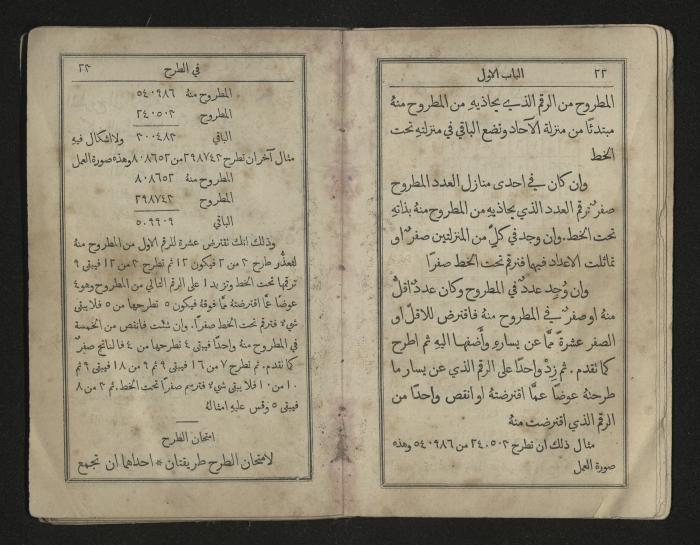 ٢٢ الباب الاول
المطروح من الرقم الذي يحاذيهِ من المطروح منهُ
مبتدئًا من منزلة الآحاد ونضع الباقي في منزلتهِ تحت
الخط
وان كان في احدى منازل العدد المطروح
صفرٌ ترقم العدد الذي يحاذيهِ من المطروح منهُ بذاتهِ
تحت الخط. وإن وجد في كلٍّ من المنزلتين صفرٌ او
تماثلت الاعداد فيهما فترقم تحت الخط صفرًا
وان وُجِد عددٌ في المطروح وكان عددٌ اقلُّ
منهُ او صفرٌ في المطروح منهُ فاقترض للاقلّ او
الصفر عشرة ممَّا عن يسارهِ وأَضفها اليهِ ثم اطرح
كما تقدم. ثم زِدْ واحدًا على الرقم الذي عن يسار ما
طرحتهُ عوضًا عمَّا اقترضتهُ او انقص واحدًا من
الرقم الذي اقترضت منهُ
مثال ذلك ان نطرح ٢٤٠٥٠٣ من ٥٤٠٩٨٦ وهذه
صورة العمل
في الطرح ٢٣
المطروح منهُ ٥٤٠٩٨٦
المطروح ٢٤٠٥٠٣
الباقي ٣٠٠٤٨٣ ولا اشكال فيهِ
مثال آخر ان نطرح ٢٩٨٧٤٣ من ٨٠٨٦٥٢ وهذه صورة العمل
المطروح منهُ ٨٠٨٦٥٢
المطروح ٢٩٨٧٤٣
الباقي ٥٠٩٩٠٩
وذلك انك تقترض عشرة للرقم الاول من المطروح منهُ
لتعذُّر طرح ٣ من ٢ فيكون ١٢ ثم تطرح ٣ من ١٢ فيبقى ٩
ترقمها تحت الخط وتزيد ١ على الرقم التالي من المطروح وهو ٤
عوضًا عمَّا اقترضتهُ ممَّا فوقهُ فيكون ٥ تطرحها من ٥ فلا يبقى
شيءٌ فترقم تحت الخط صفرًا. وإن شئت فانقص من الخمسة
في المطروح منهُ واحدًا فيبقى ٤ تطرحها من ٤ فالناتج صفرٌ
كما تقدم. ثم نطرح ٧ من ١٦ فيبقى ٩ ثم ٩ من ١٨ فيبقى ٩ ثم
١٠ من ١٠ فلا يبقى شيءٌ فترسم صفرًا تحت الخط. ثم ٣ من ٨
فيبقى ٥ وقس عليهِ امثالهُ
امتحان الطرح
لامتحان الطرح طريقتان * احداهما ان تجمع